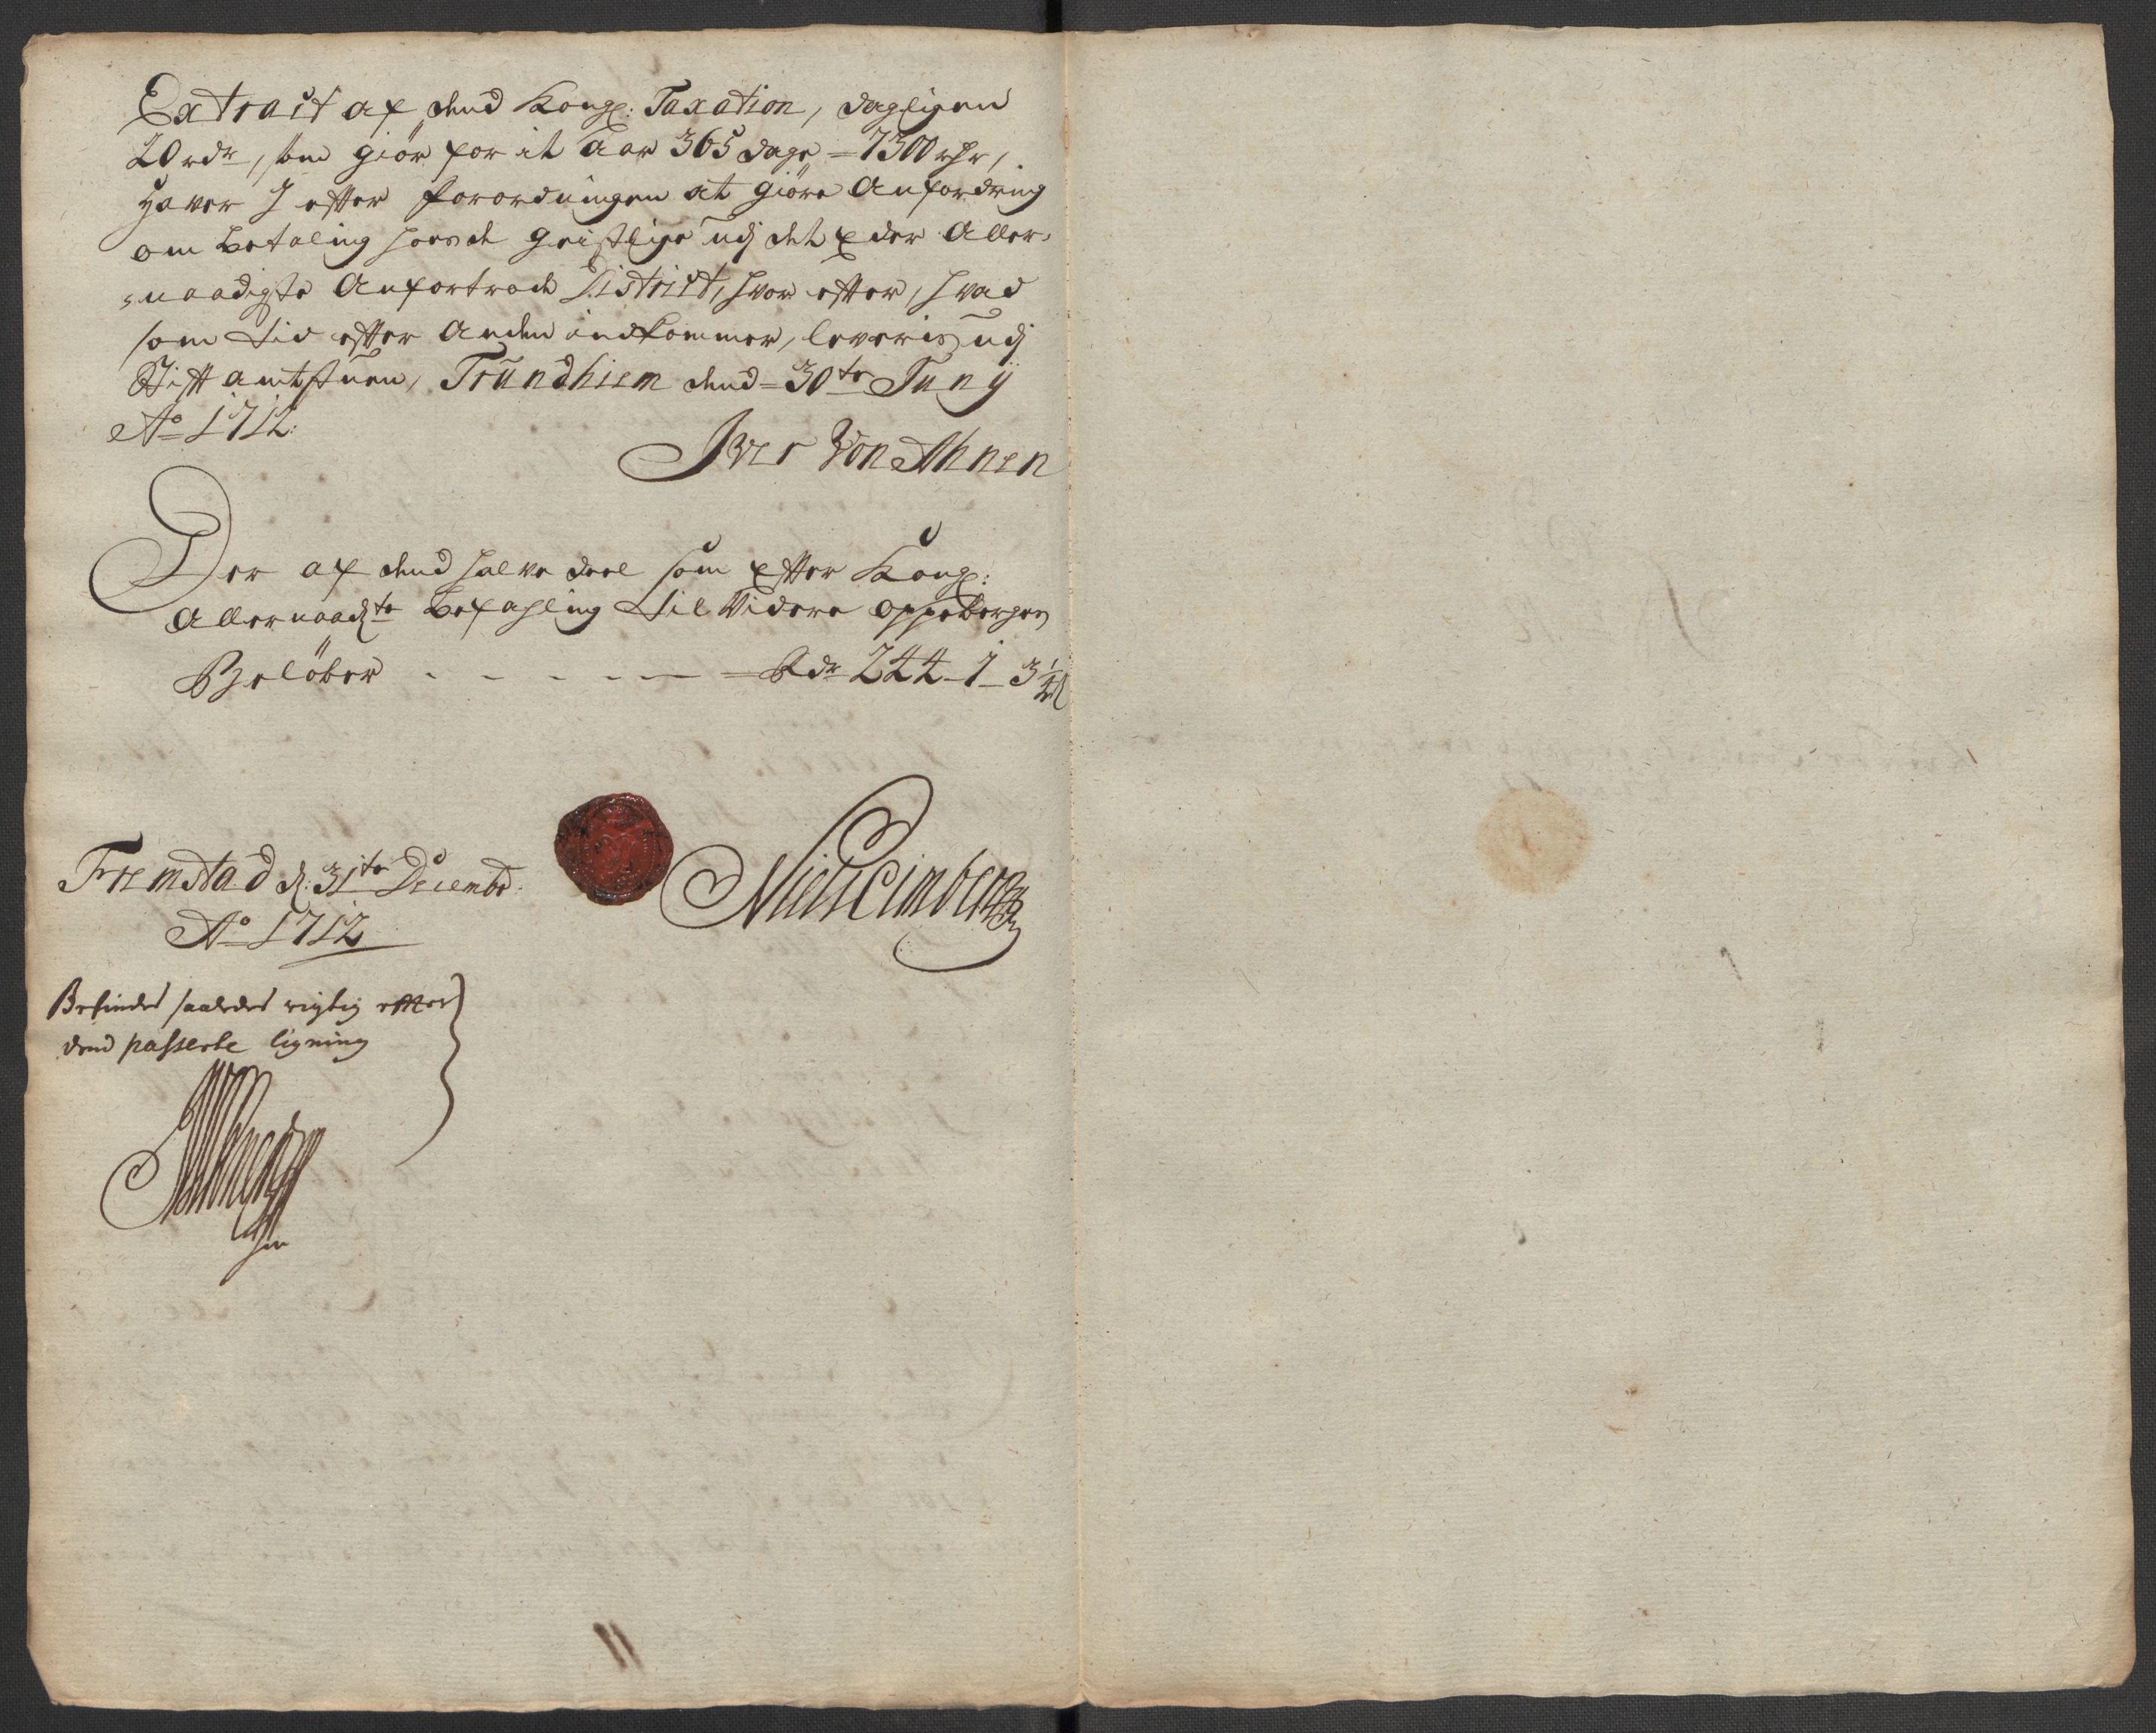 Extract af dend Kongl: Taxation, dagligen
20 rdr, som giör for it Aar 365 dage = 7300 rdr,
Haver I efter forordningen at giöre Anfordring
om betaling hos de geistlige udj det Eder Aller-
naadigste Anfortrode District, hvor efter, hvad
som tid efter anden indkommer, leveris udj
Stiftamtstuen, Trundhiem dend 30te Junÿ
Ao 1712:
Iver Von Ahnen
Der af dend halve deel som Efter Kongl:
Allernaadste befahling til Videre oppebergs
Belöber - - - - - Rdr 244 - 1 - 3 1/4 s
Fremstad d: 31te Decembr:
Ao 1712
Befindes saaledes rigtig efter
dend passerte ligning